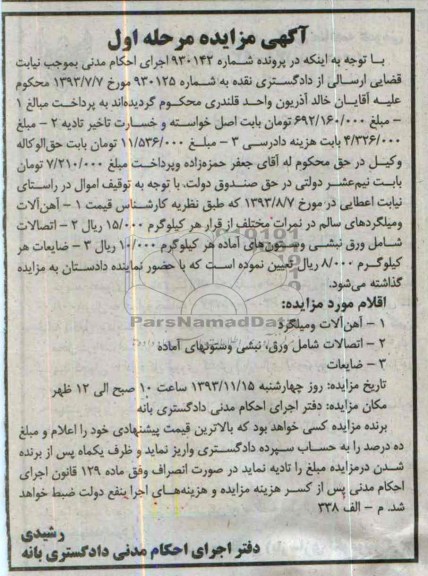 آگهی مزایده مرحله اول
با توجه به اینکه در پرونده شماره ۹۳۰۱۴۲ اجرای احکام مدنی بموجب نیابت
قضایی ارسالی از دادگستری نقده به شماره ۹۳۰۱۲۵ مورخ ۱۳۹۳/۷/۷ محکوم
علیه آقایان خالد آذریون واحد قلندری محکوم گردیده‌اند به پرداخت مبالغ ۱
- مبلغ ۶۹۲/۱۶۰/۰۰۰ تومان بابت اصل خواسته و خسارت تاخیر تادیه ۲ - مبلغ
۴/۳۲۶/۰۰۰ بابت هزینه دادرسی ۳ - مبلغ ۱۱/۵۳۶/۰۰۰ تومان بابت حق‌الوکاله
وکیل در حق محکوم له آقای جعفر حمزه‌زاده وپرداخت مبلغ ۷/۲۱۰/۰۰۰ تومان
بابت نیم‌عشر دولتی در حق صندوق دولت. با توجه به توقیف اموال در راستای
نیابت اعطایی در مورخ ۱۳۹۳/۸/۷ که طبق نظریه کارشناس قیمت ۱ - آهن‌آلات
ومیلگردهای سالم در نمرات مختلف از قرار هر کیلوگرم ۱۵/۰۰۰ ریال ۲ - اتصالات
شامل ورق نبشی وستون‌های آماده هر کیلوگرم ۱۰/۰۰۰ ریال ۳ - ضایعات هر
کیلوگرم ۸/۰۰۰ ریال تعیین نموده است که با حضور نماینده دادستان به مزایده
گذاشته می‌شود.
اقلام مورد مزایده:
۱ - آهن‌آلات ومیلگرد
ParsNamadData
۲ - اتصالات شامل ورق، نبشی وستونهای آماده
۳ - ضایعات
تاریخ مزایده: روز چهارشنبه ۱۳۹۳/۱۱/۱۵ ساعت ۱۰ صبح الی ۱۲ ظهر
مکان مزایده: دفتر اجرای احکام مدنی دادگستری بانه
برنده مزایده کسی خواهد بود که بالاترین قیمت پیشنهادی خود را اعلام و مبلغ
ده درصد را به حساب سپرده دادگستری واریز نماید و ظرف یکماه پس از برنده
شدن درمزایده مبلغ را تادیه نماید در صورت انصراف وفق ماده ۱۲۹ قانون اجرای
احکام مدنی پس از کسر هزینه مزایده و هزینه‌های اجرا بنفع دولت ضبط خواهد
شد. م - الف ۳۳۸
رشیدی
دفتر اجرای احکام مدنی دادگستری بانه